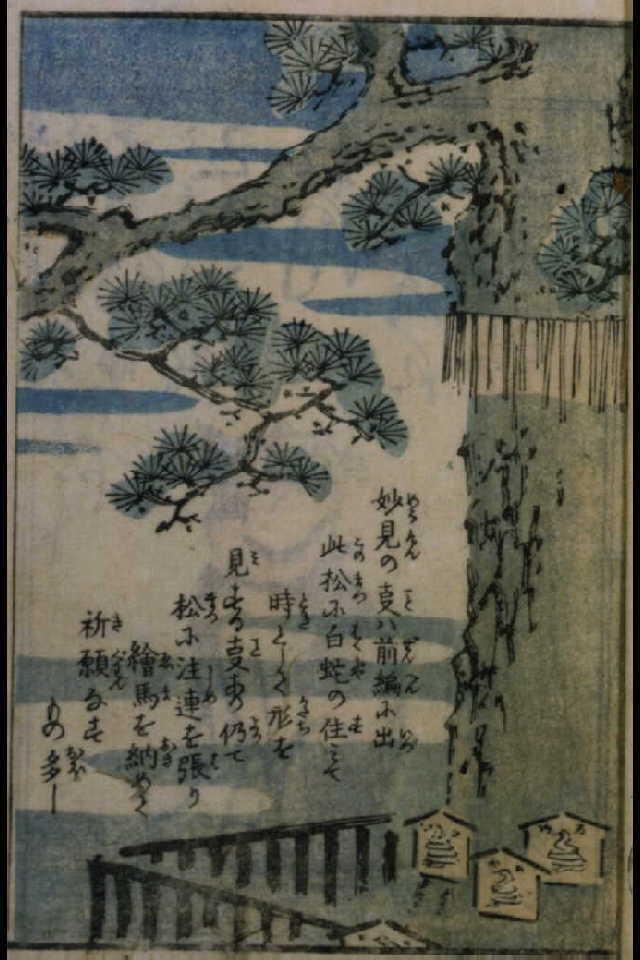 妙見の夏ハ前編に出
此松に白蛇の住ミて
時として形を
見する夏あり仍て
松に注連を張り
繪馬を納めて
祈願なす
もの多し